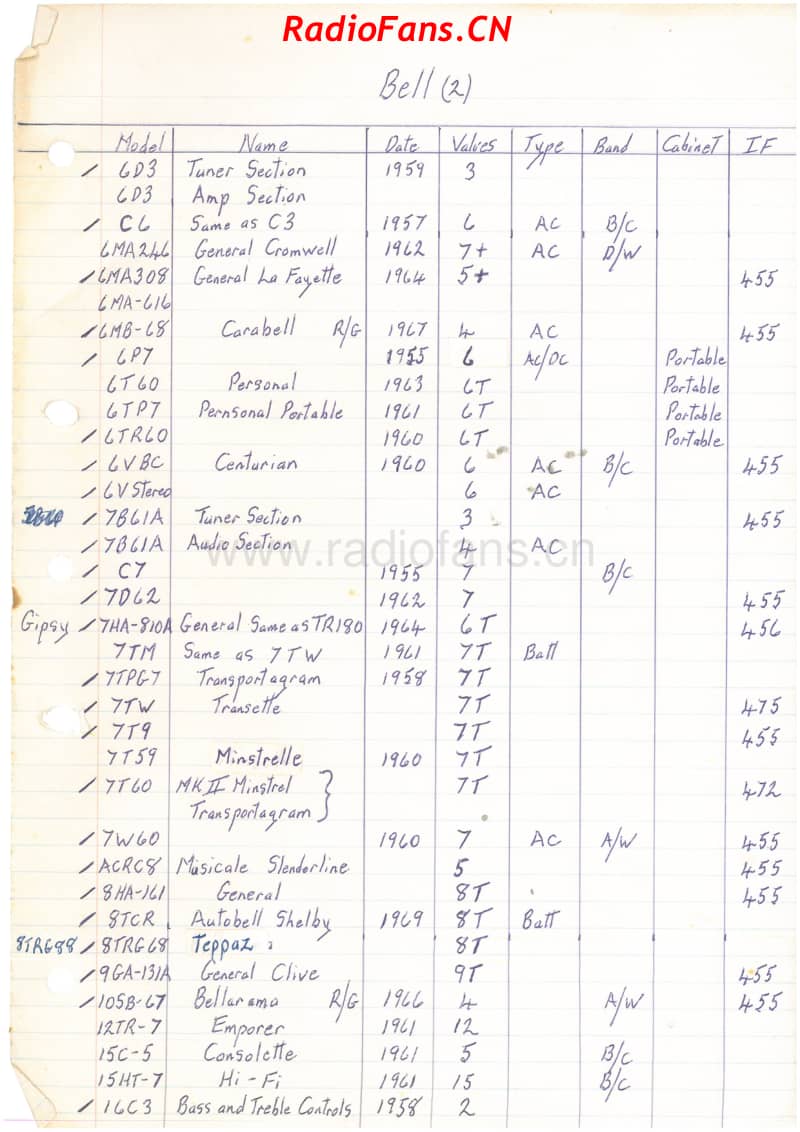 RadioFans.CN
Bell (2)
Model Name Date Values Type Band Cabinet IF
/ 6D3 Tuner Section 1959 3
6D3 Amp Section
/ C6 Same as C3 1957 6 AC B/C
6MA246 General Cromwell 1962 7+ AC D/W
/ 6MA308 General La Fayette 1964 5+ 455
6MA-616
/ 6MB-68 Carabell R/G 1967 4 AC 455
/ 6P7 1955 6 AC/DC Portable
6T60 Personal 1963 6T Portable
6TP7 Pernsonal Portable 1961 6T Portable
/ 6TR60 1960 6T Portable
/ 6VBC Centurian 1960 6 AC B/C 455
/ 6V Stereo 6 AC
/ 7B61A Tuner Section 3 455
/ 7B61A Audio Section 4 AC
www.radiofans.cn
/ C7 1955 7 B/C
/ 7D62 1962 7 455
Gipsy / 7HA-810A General Same as TR180 1964 6T 456
7TM Same as 7TW 1961 7T Batt
/ 7TPG7 Transportagram 1958 7T
/ 7TW Transette 7T 475
/ 7T9 7T 455
7T59 Minstrelle 1960 7T
/ 7T60 MK II Minstrel } 7T 472
Transportagram
/ 7W60 1960 7 AC A/W 455
/ ACRC8 Musicale Slenderline 5 455
/ 8HA-161 General 8T 455
/ 8TCR Autobell Shelby 1969 8T Batt
8TRG88 / 8TRG68 Teppaz 8T
/ 9GA-131A General Clive 9T 455
/ 105B-67 Bellarama R/G 1966 4 A/W 455
12TR-7 Emporer 1961 12
15C-5 Consolette 1961 5 B/C
15HT-7 Hi-Fi 1961 15 B/C
/ 16C3 Bass and Treble Controls 1958 2